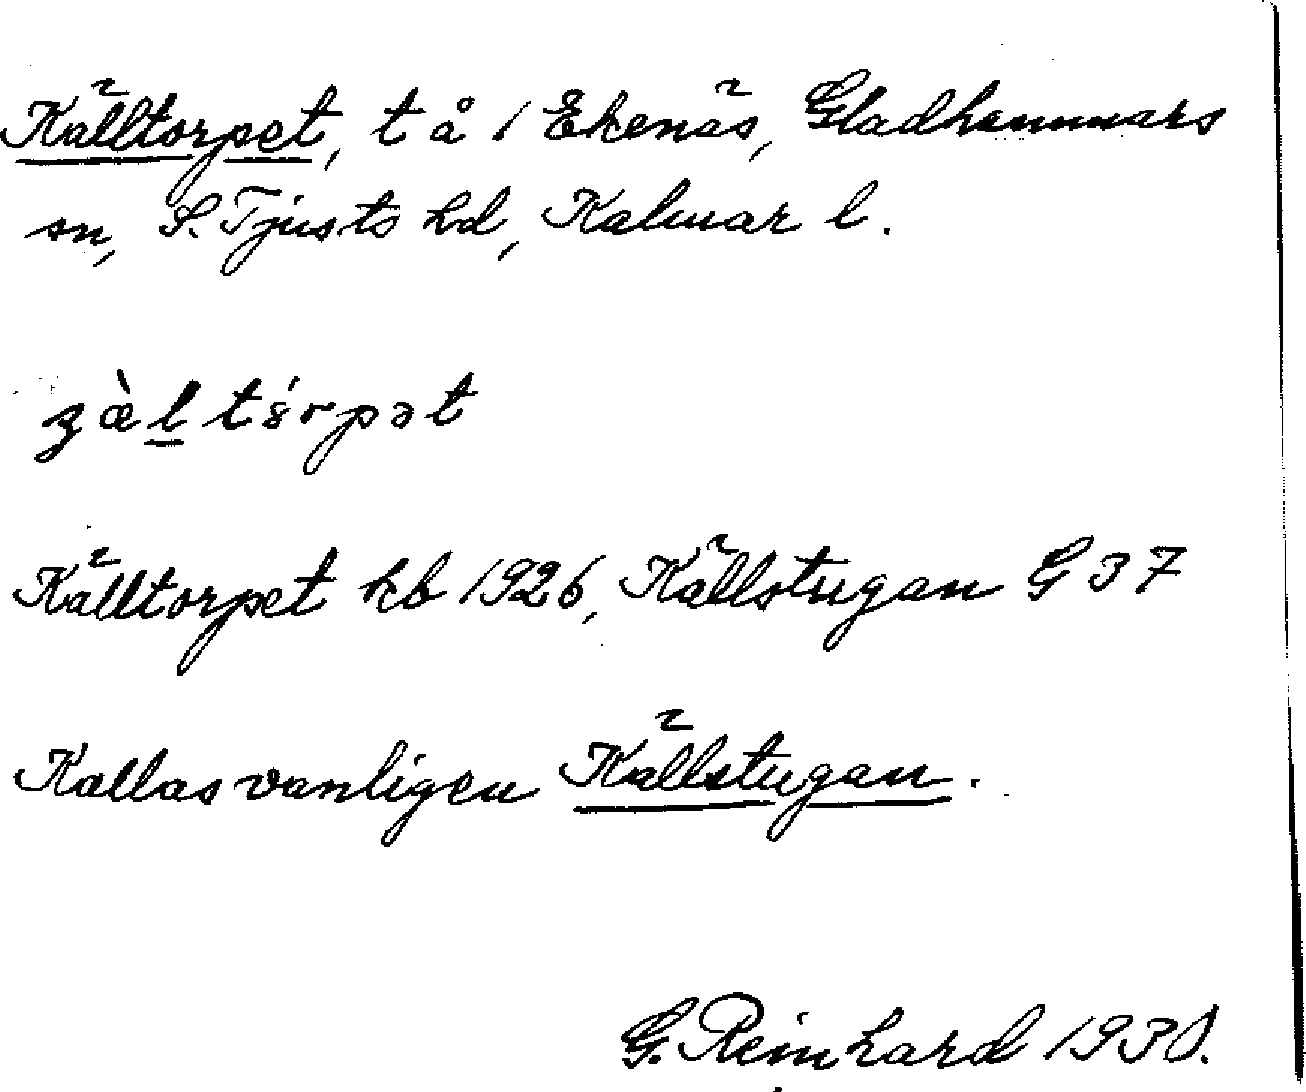 Källtorpet, t å 1 Ekenäs, Gladhammars
sn, S. Tjusts hd, Kalmar l.
Källtorpet kb 1926, Källstugan G 37
Kallas vanligen Källstugan.
G. Reinhard 1930.